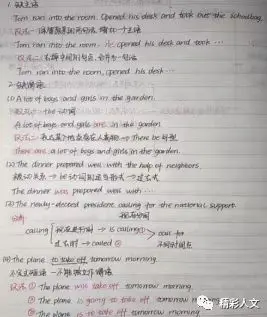 1. 缺主语
Tom ran into the room. Opened his desk and took out the schoolbag.
改法一：增一个主语
Tom ran into the room. He opened his desk and took ···
改法二：合并为一句话
Tom ran into the room, opened his desk ···
2. 缺谓语
(1) A lot of boys and girls in the garden.
改法一：be 动词
A lot of boys and girls are in the garden.
改法二：表达某个地点存在人或物 → There be 句型
There are a lot of boys and girls in the garden.
(2) The dinner prepared well with the help of neighbors.
被动关系 → be 动词 过去分词
The dinner was prepared well with ···
(3) The newly-elected president calling for the national support.
现在分词
calling 现在进行时 → is calling ①
过去时 → called ②
call for
不同时间点
(4) The plane to take off tomorrow morning.
不定式 不能独立作谓语
改法 ① The plane will take off tomorrow morning.
② The plane is going to take off tomorrow
③ The plane is to take off tomorrow
精彩人文